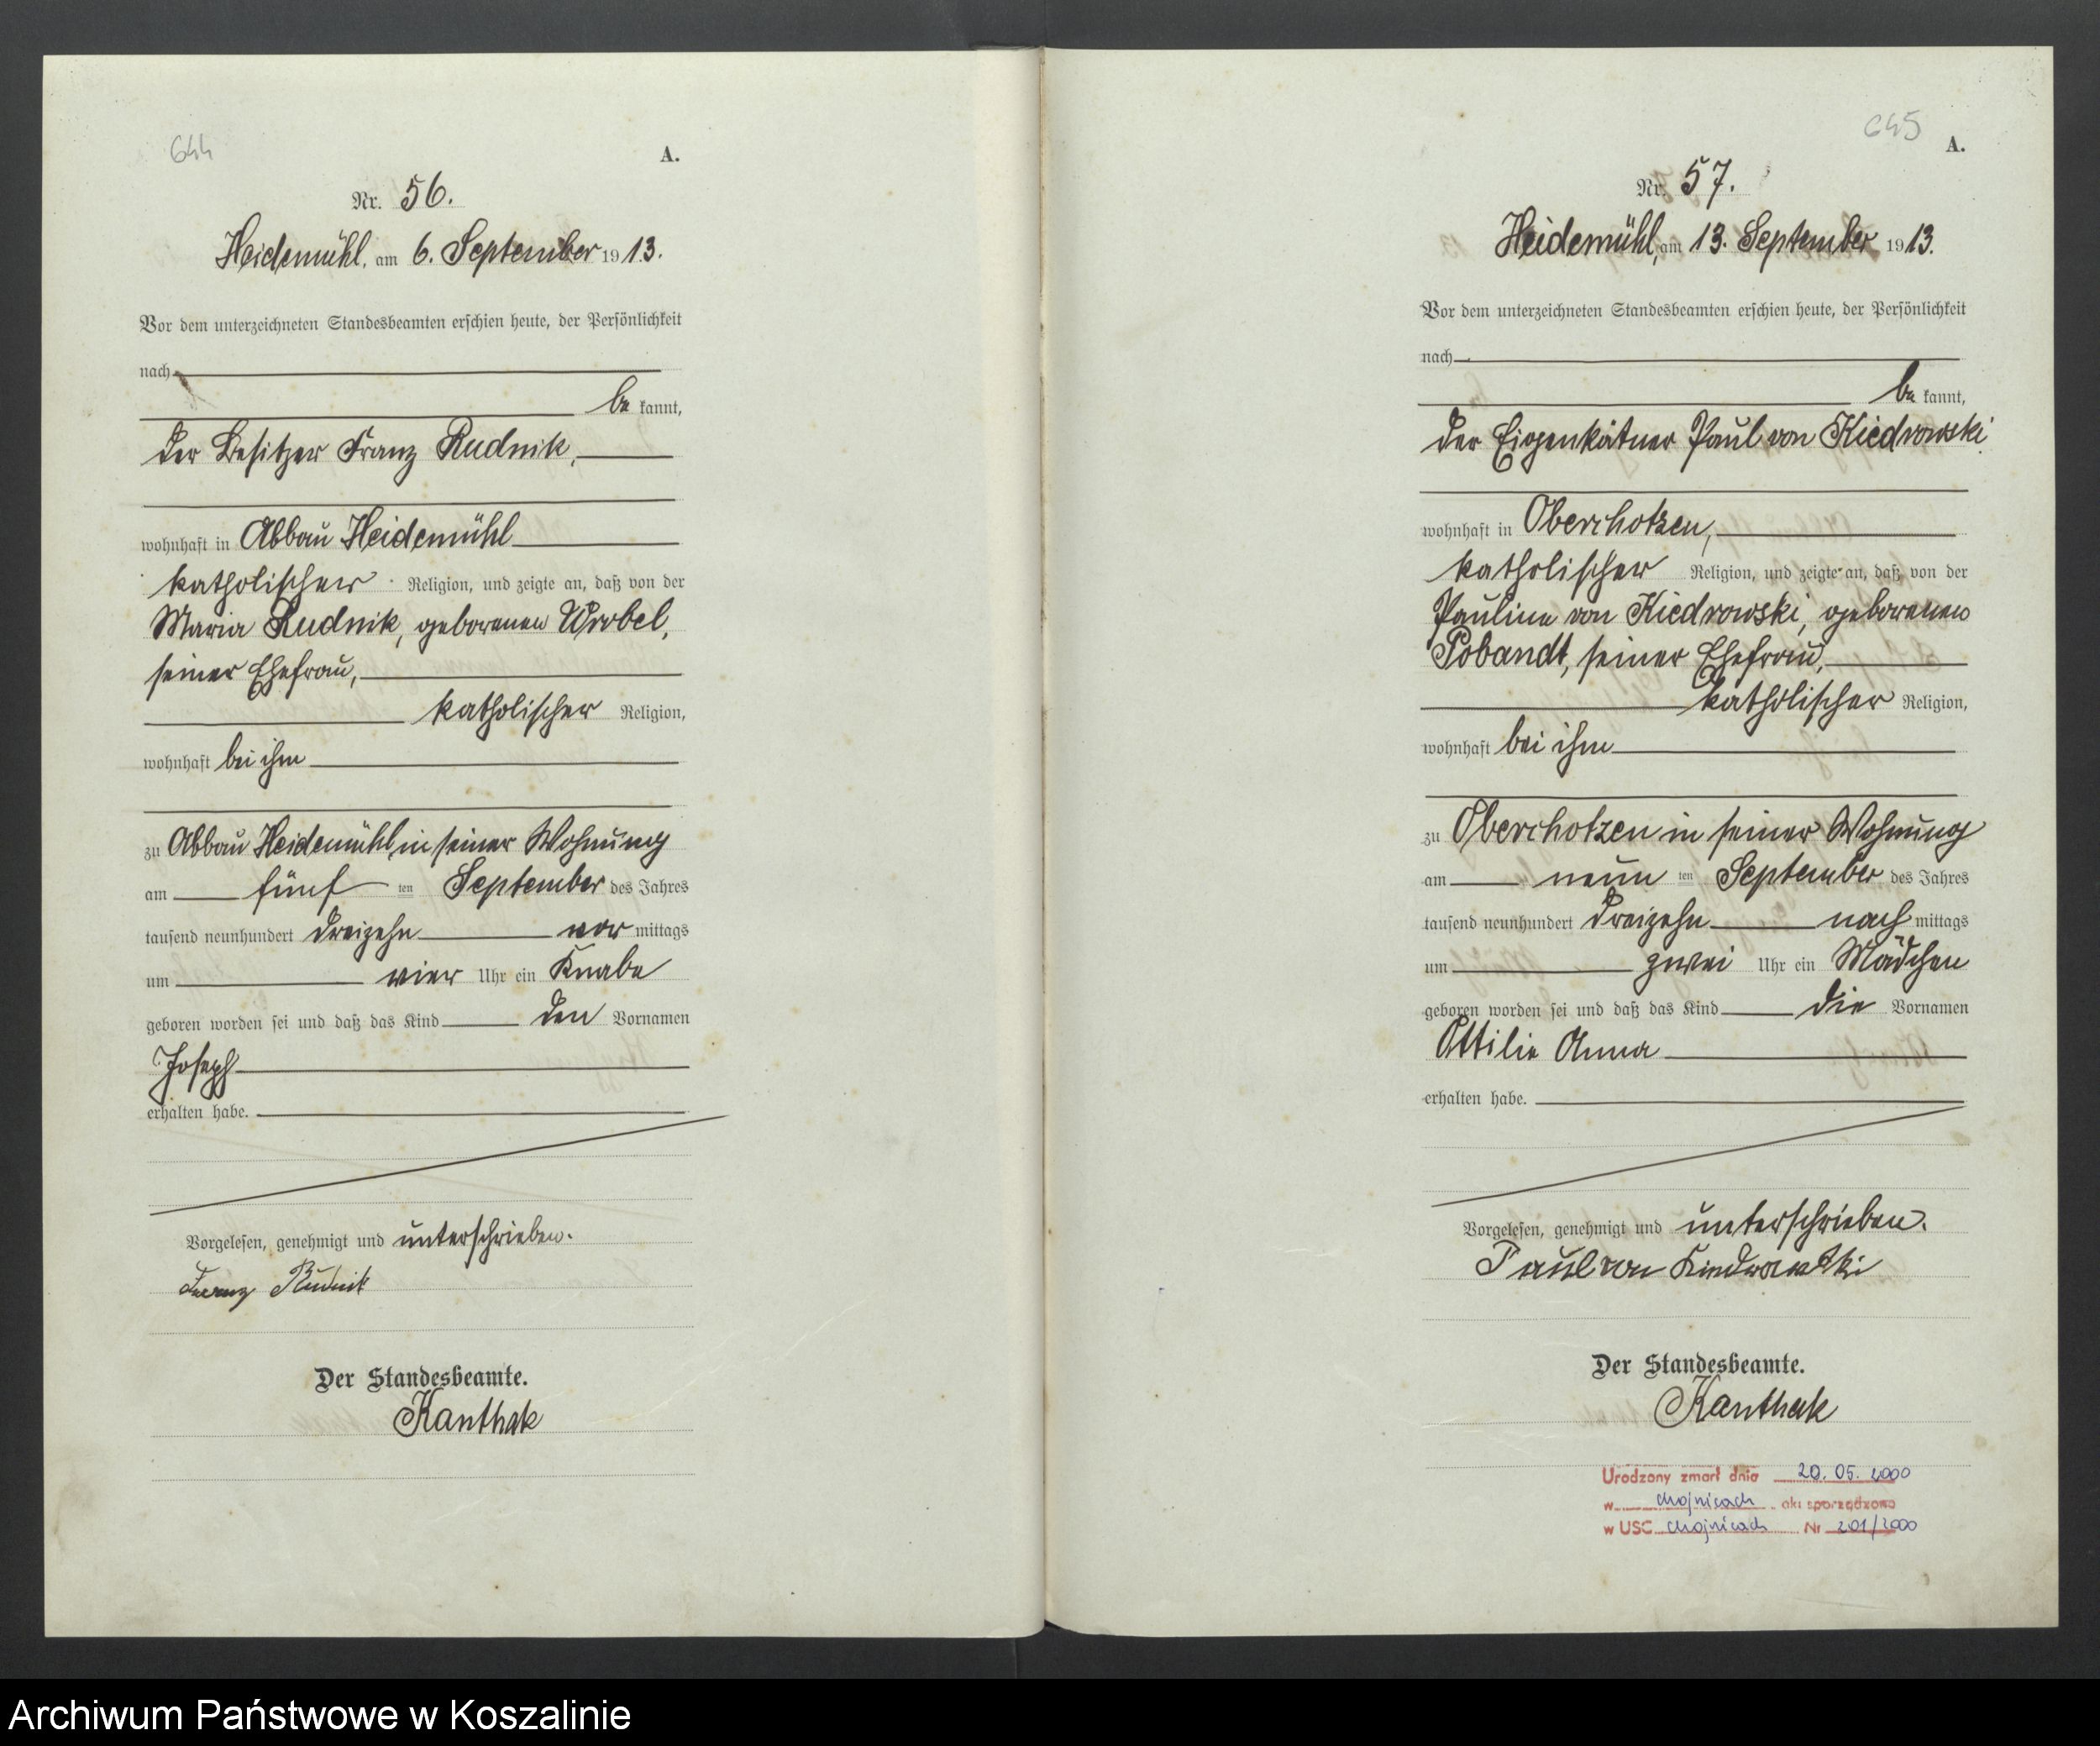 644
A.
Nr. 56.
Heidemühl, am 6. September 1913.
Vor dem unterzeichneten Standesbeamten erschien heute, der Persönlichkeit
nach
be kannt,
der Besitzer Franz Rudnik,
wohnhaft in Abbau Heidemühl
katholischer Religion, und zeigte an, daß von der
Maria Rudnik, geborenen Wrobel,
seiner Ehefrau,
katholischer Religion,
wohnhaft bei ihm
zu Abbau Heidemühl in seiner Wohnung
am fünf ten September des Jahres
tausend neunhundert dreizehn vor mittags
um vier Uhr ein Knabe
geboren worden sei und daß das Kind den Vornamen
Joseph
erhalten habe.
Vorgelesen, genehmigt und unterschrieben.
Franz Rudnik
Der Standesbeamte.
Kanthak
645
A.
Nr. 57.
Heidemühl, am 13. September 1913.
Vor dem unterzeichneten Standesbeamten erschien heute, der Persönlichkeit
nach
be kannt,
der Eigenkätner Paul von Kiedrowski,
wohnhaft in Oberchotzen,
katholischer Religion, und zeigte an, daß von der
Pauline von Kiedrowski, geborenen
Pobandt, seiner Ehefrau,
katholischer Religion,
wohnhaft bei ihm
zu Oberchotzen in seiner Wohnung
am neun ten September des Jahres
tausend neunhundert dreizehn nach mittags
um zwei Uhr ein Mädchen
geboren worden sei und daß das Kind die Vornamen
Ottilie Anna
erhalten habe.
Vorgelesen, genehmigt und unterschrieben.
Paul von Kiedrowski
Der Standesbeamte.
Kanthak
Urodzony zmarł dnia 20.05.2000
w Chojnicach akt sporządzono
w USC Chojnicach Nr 201/2000
Archiwum Państwowe w Koszalinie